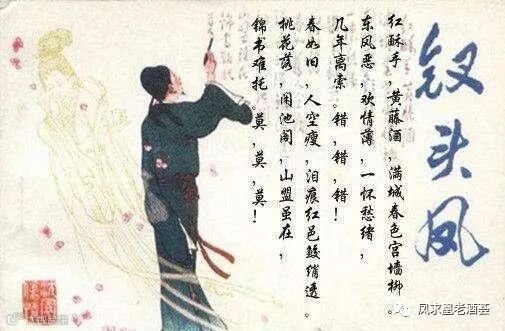 钗头凤
红酥手,黄藤酒,满城春色宫墙柳。
东风恶,欢情薄,一怀愁绪,
几年离索。错,错,错!
春如旧,人空瘦,泪痕红邑鲛绡透。
桃花落,闲池阁,山盟虽在,
锦书难托。莫,莫,莫!
凤求凰老酒荟